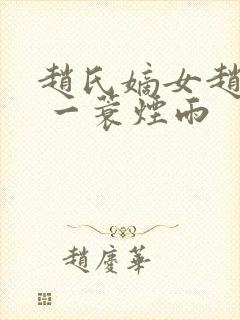 趙氏嫡女趙
一蓑煙雨
趙慶華